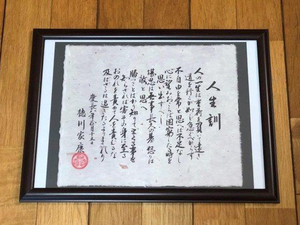 人生訓
人の一生は重荷を負て遠き
道を行くが如し急ぐべからず
不自由を常と思へば不足なし
心に望みおこらば困窮したる時を
思ひ出すべし
堪忍は無事長久の基 怒りは
敵と思へ
勝つことばかり知りてまくる事を
知らざれば害其の身に至る
おのれを責めて人を責むるな
及ばざるは過ぎたるよりまされり
慶長八年正月十五日
徳川家康